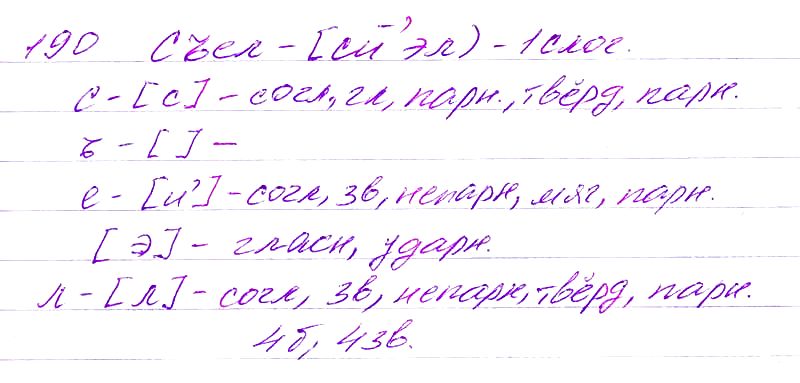 190 Съел - [сй'эл) - 1 слог.
с - [с] - согл, гл, парн., твёрд, парн.
ъ - [ ] -
е - [й'] - согл, зв, непарн, мяг, парн.
[э] - гласн, ударн.
л - [л] - согл, зв, непарн, твёрд, парн.
4б, 4зв.